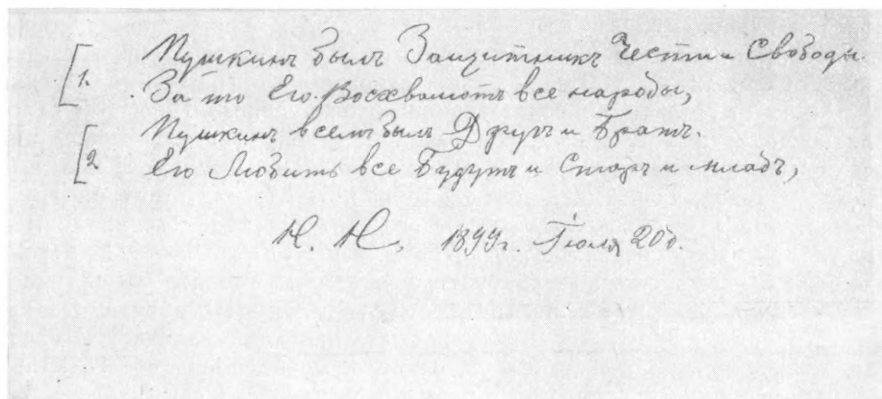 1. Пушкинъ былъ Защитникъ Чести и Свободы.
За то Его Восхваляютъ все народы,
2 Пушкинъ всемъ былъ Другъ и Братъ.
Его Любить все Будутъ и Старъ и младъ,
Н. Н, 1899г. Іюля 20 д.